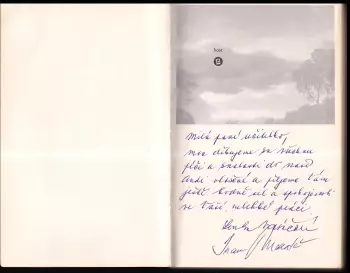 Milá paní učitelko,
moc děkujeme za všechnu
péči a znalosti do
vložené a přejeme Vám
ještě hodně sil a spokojenosti
ve Vaší nelehké práci
Lenka
Ivan